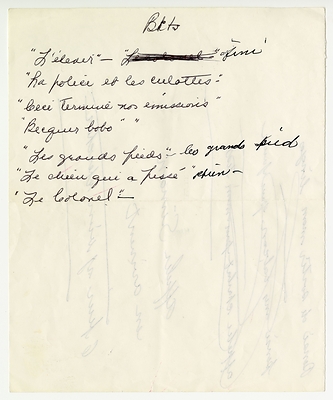 Bits
"L'élever" — "fini
"La police et les culottes"
"Ceci termine nos émissions"
"Becquer bobo" "
"Les grands pieds" - les grands pied
"Le chien qui a pissé" chien -
"Le Colonel" -